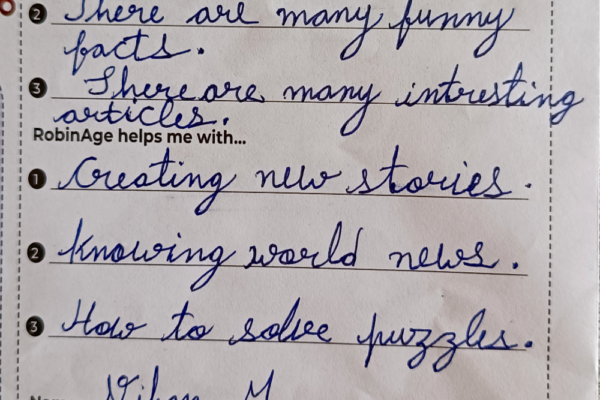 2 There are many funny
facts.
3 There are many intresting
articles.
RobinAge helps me with...
1 Creating new stories.
2 Knowing world news.
3 How to solve puzzles.